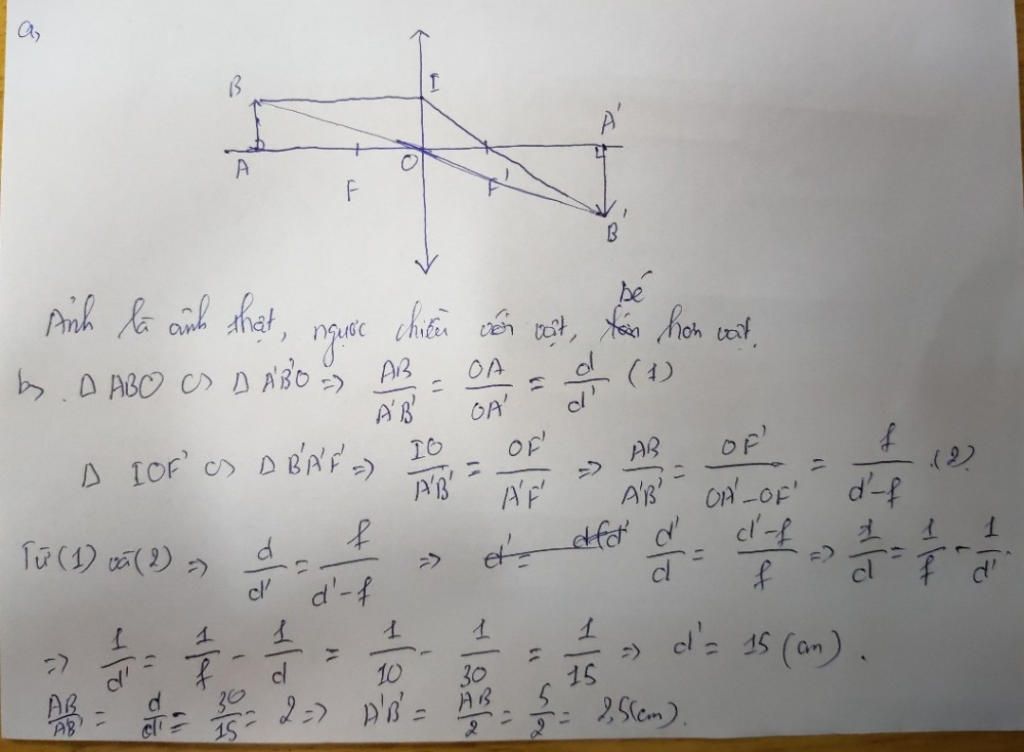 a,
B I A'
A F O F' B'
Ảnh là ảnh thật, ngược chiều với vật, bé hơn vật.
b, ΔABO ∽ ΔA'B'O => AB/A'B' = OA/OA' = d/d' (1)
Δ IOF' ∽ Δ B'A'F' => IO/A'B' = OF'/A'F' => AB/A'B' = OF'/OA'-OF' = f/d'-f .(2)
Từ (1) và (2) => d/d' = f/d'-f => d'/d = d'-f/f => 1/d = 1/f - 1/d'.
=> 1/d' = 1/f - 1/d = 1/10 - 1/30 = 1/15 => d' = 15 (cm).
AB/A'B' = d/d' = 30/15 = 2 => A'B' = AB/2 = 5/2 = 2,5(cm).